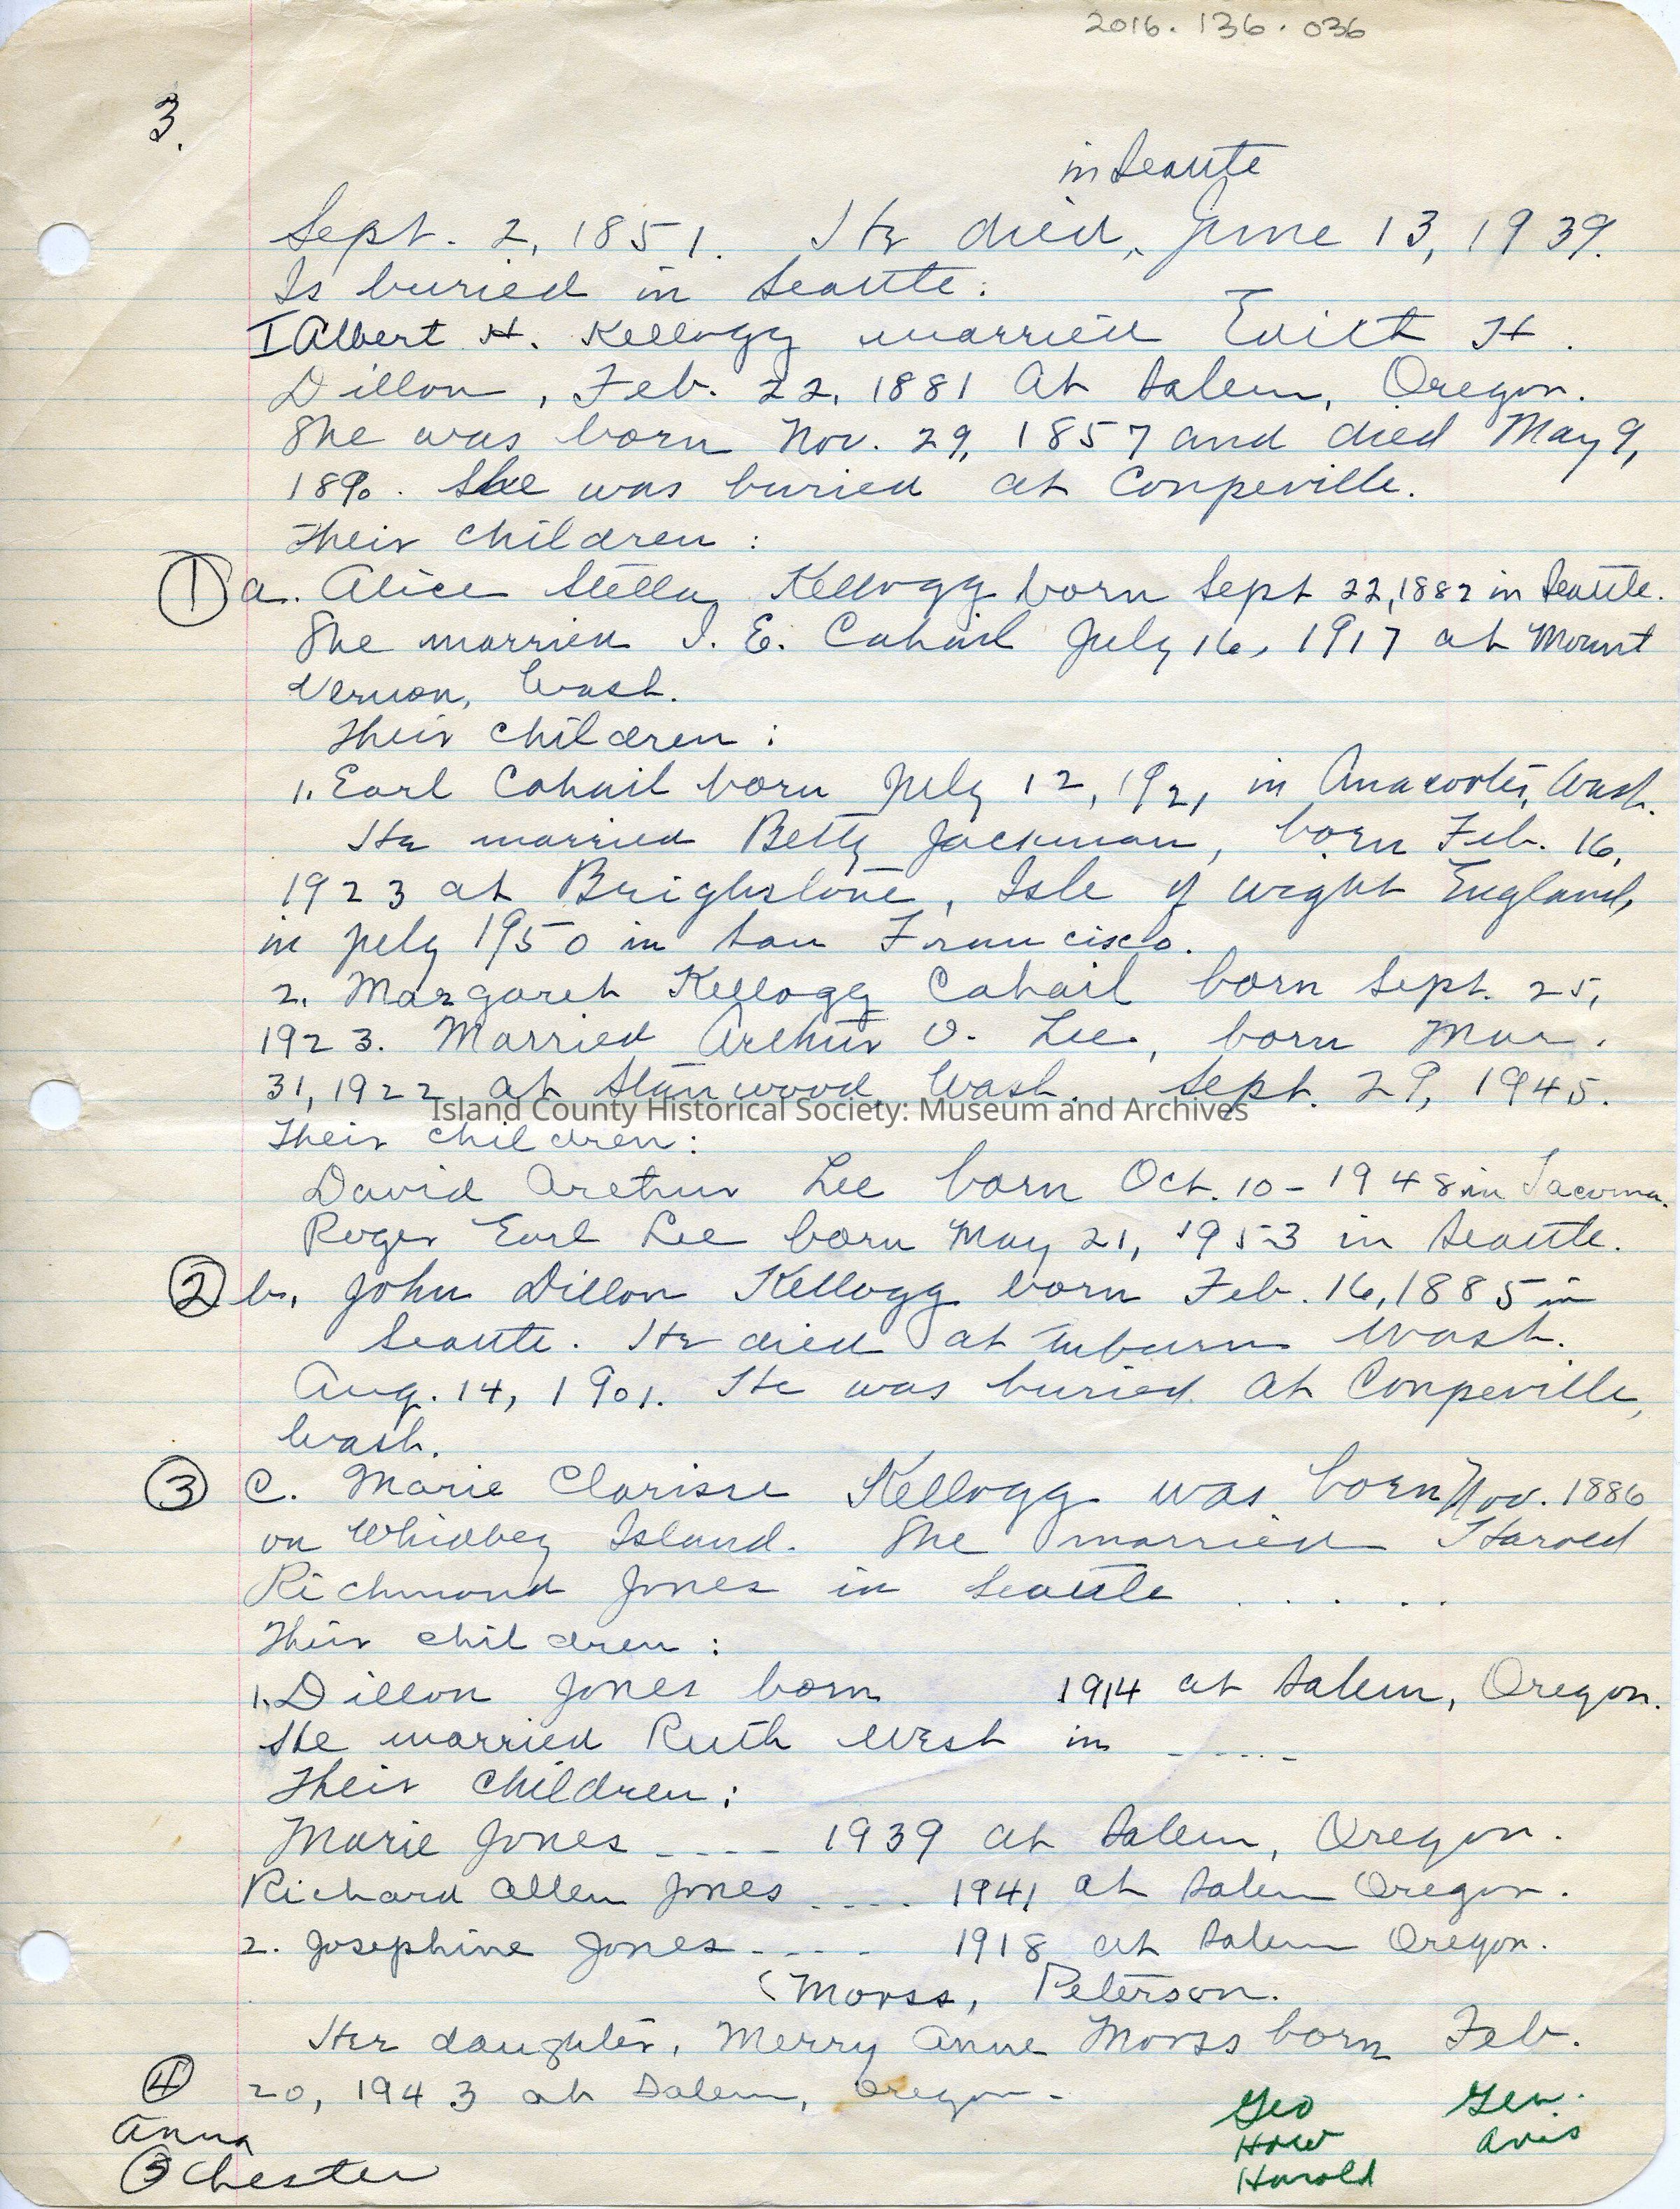 2016.136.036
3.
in Seattle
Sept. 2, 1851. He died, June 13, 1939.
Is buried in Seattle.
I Albert H. Kellogg married Edith H.
Dillon, Feb. 22, 1881 at Salem, Oregon.
She was born Nov. 29, 1857 and died May 9,
1890. She was buried at Coupeville.
Their children:
① a. Alice Stella Kellogg born Sept 22, 1882 in Seattle.
She married I. E. Cahail July 16, 1917 at Mount
Vernon, Wash.
Their children:
1. Earl Cahail born July 12, 1921 in Anacortes, Wash.
He married Betty Jackman, born Feb. 16,
1923 at Brighstone, Isle of Wight England,
in July 1950 in San Francisco.
2. Margaret Kellogg Cahail born Sept. 25,
1923. Married Arthur O. Lee, born Mar.
31, 1922 at Stanwood Wash. Sept. 29, 1945.
Island County Historical Society: Museum and Archives
Their children:
David Arthur Lee born Oct. 10 - 1948 in Tacoma.
Roger Earl Lee born May 21, 1953 in Seattle.
② b. John Dillon Kellogg born Feb. 16, 1885 in
Seattle. He died at Auburn Wash.
Aug. 14, 1901. He was buried at Coupeville,
Wash.
③ C. Marie Clarisse Kellogg was born Nov. 1886
on Whidbey Island. She married Harold
Richmond Jones in Seattle . . . . .
Their children:
1. Dillon Jones born 1914 at Salem, Oregon.
He married Ruth West in -----
Their children:
Marie Jones ---- 1939 at Salem, Oregon.
Richard Allen Jones .... 1941 at Salem Oregon.
2. Josephine Jones ---- 1918 at Salem Oregon.
(Morss, Peterson.
Her daughter, Merry Anne Morss born Feb.
④ 20, 1943 at Salem, Oregon.
Anna
⑤ Chester
Geo Gen.
How Avis
Harold